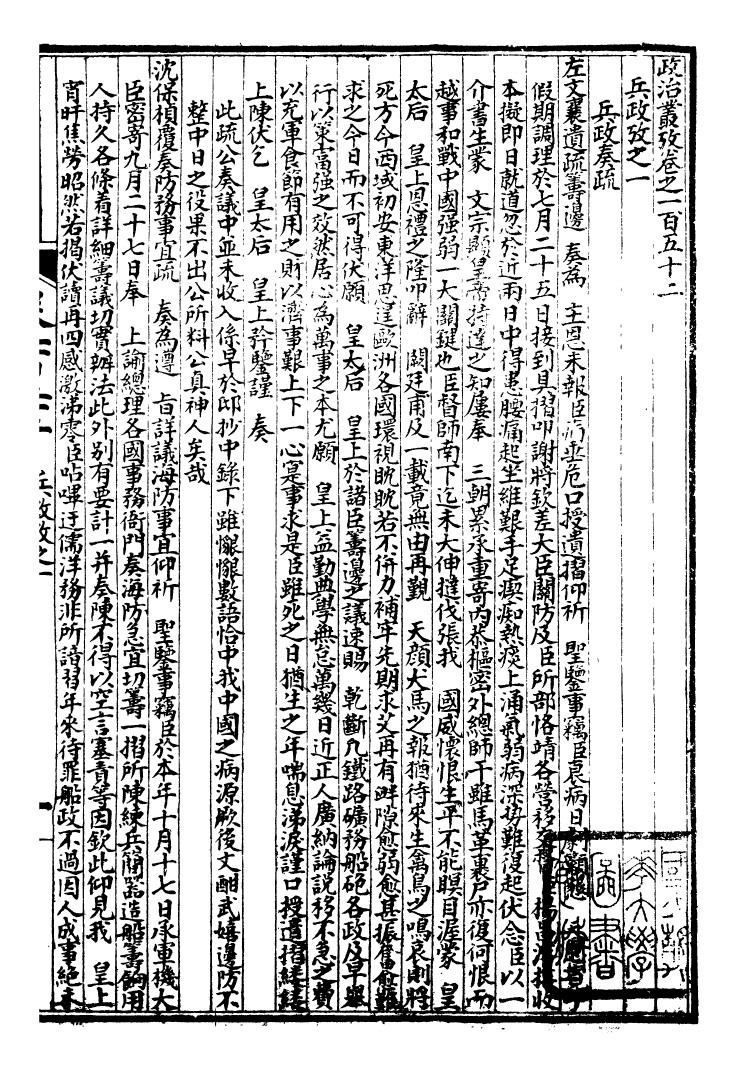 政治叢攷卷之一百五十二
兵政攷之一
兵政奏疏
左文襄遺疏籌邊 奏為 主恩未報臣病垂危口授遺摺仰祈 聖鑒事竊臣衰病日
假期調理於七月二十五日接到具摺叩謝將欽差大臣關防及臣所部恪靖各營移交
本擬即日就道忽於近兩日中得患腰痛起坐維艱手足瘈瘲熱痰上涌氣弱病深恐難復起伏念臣以一
介書生蒙 文宗顯皇帝特達之知屢奉 三朝累承重寄內忝樞密外總師干雖馬革裹尸亦復何恨而
越事和戰中國强弱一大關鍵也臣督師南下迄未大伸撻伐張我 國威懷恨生平不能瞑目渥蒙 皇
太后 皇上恩禮之隆叩辭 闕廷甫及一載竟無由再覲 天顏犬馬之報猶待來生禽鳥之鳴哀則將
死方今西域初安東洋思逞歐洲各國環視眈眈若不併力補牢先期求艾再有衅隙愈弱愈甚振奮愈難
求之今日而不可得伏願 皇太后 皇上於諸臣籌邊之議速賜 乾斷凡鐵路礦務船砲各政及早舉
行以策富强之效然居心為萬事之本尤願 皇上益勤典學無怠萬幾日近正人廣納讜說移不急之費
以充軍食節有用之財以濟事艱上下一心寔事求是臣雖死之日猶生之年喘息涕淚謹口授遺摺綎綾
上陳伏乞 皇太后 皇上矜鑒謹 奏
此疏公奏議中並未收入係早於邸抄中錄下雖懨懨數語恰中我中國之病源厥後文酣武嬉邊防不
整中日之役果不出公所料公真神人矣哉
沈保楨覆奏防務事宜疏 奏為遵 旨詳議海防事宜仰祈 聖鑒事竊臣於本年十月十七日承軍機大
臣密寄九月二十七日奉 上諭總理各國事務衙門奏海防急宜切籌一摺所陳練兵簡器造船籌餉用
人持久各條着詳細籌議切實辦法此外別有要計一并奏陳不得以空言塞責等因欽此仰見我 皇上
宵旰焦勞昭然若揭伏讀再四感激涕零臣呫嗶迂儒洋務非所諳習年來待罪船政不過因人成事絕未
兵政攷之一